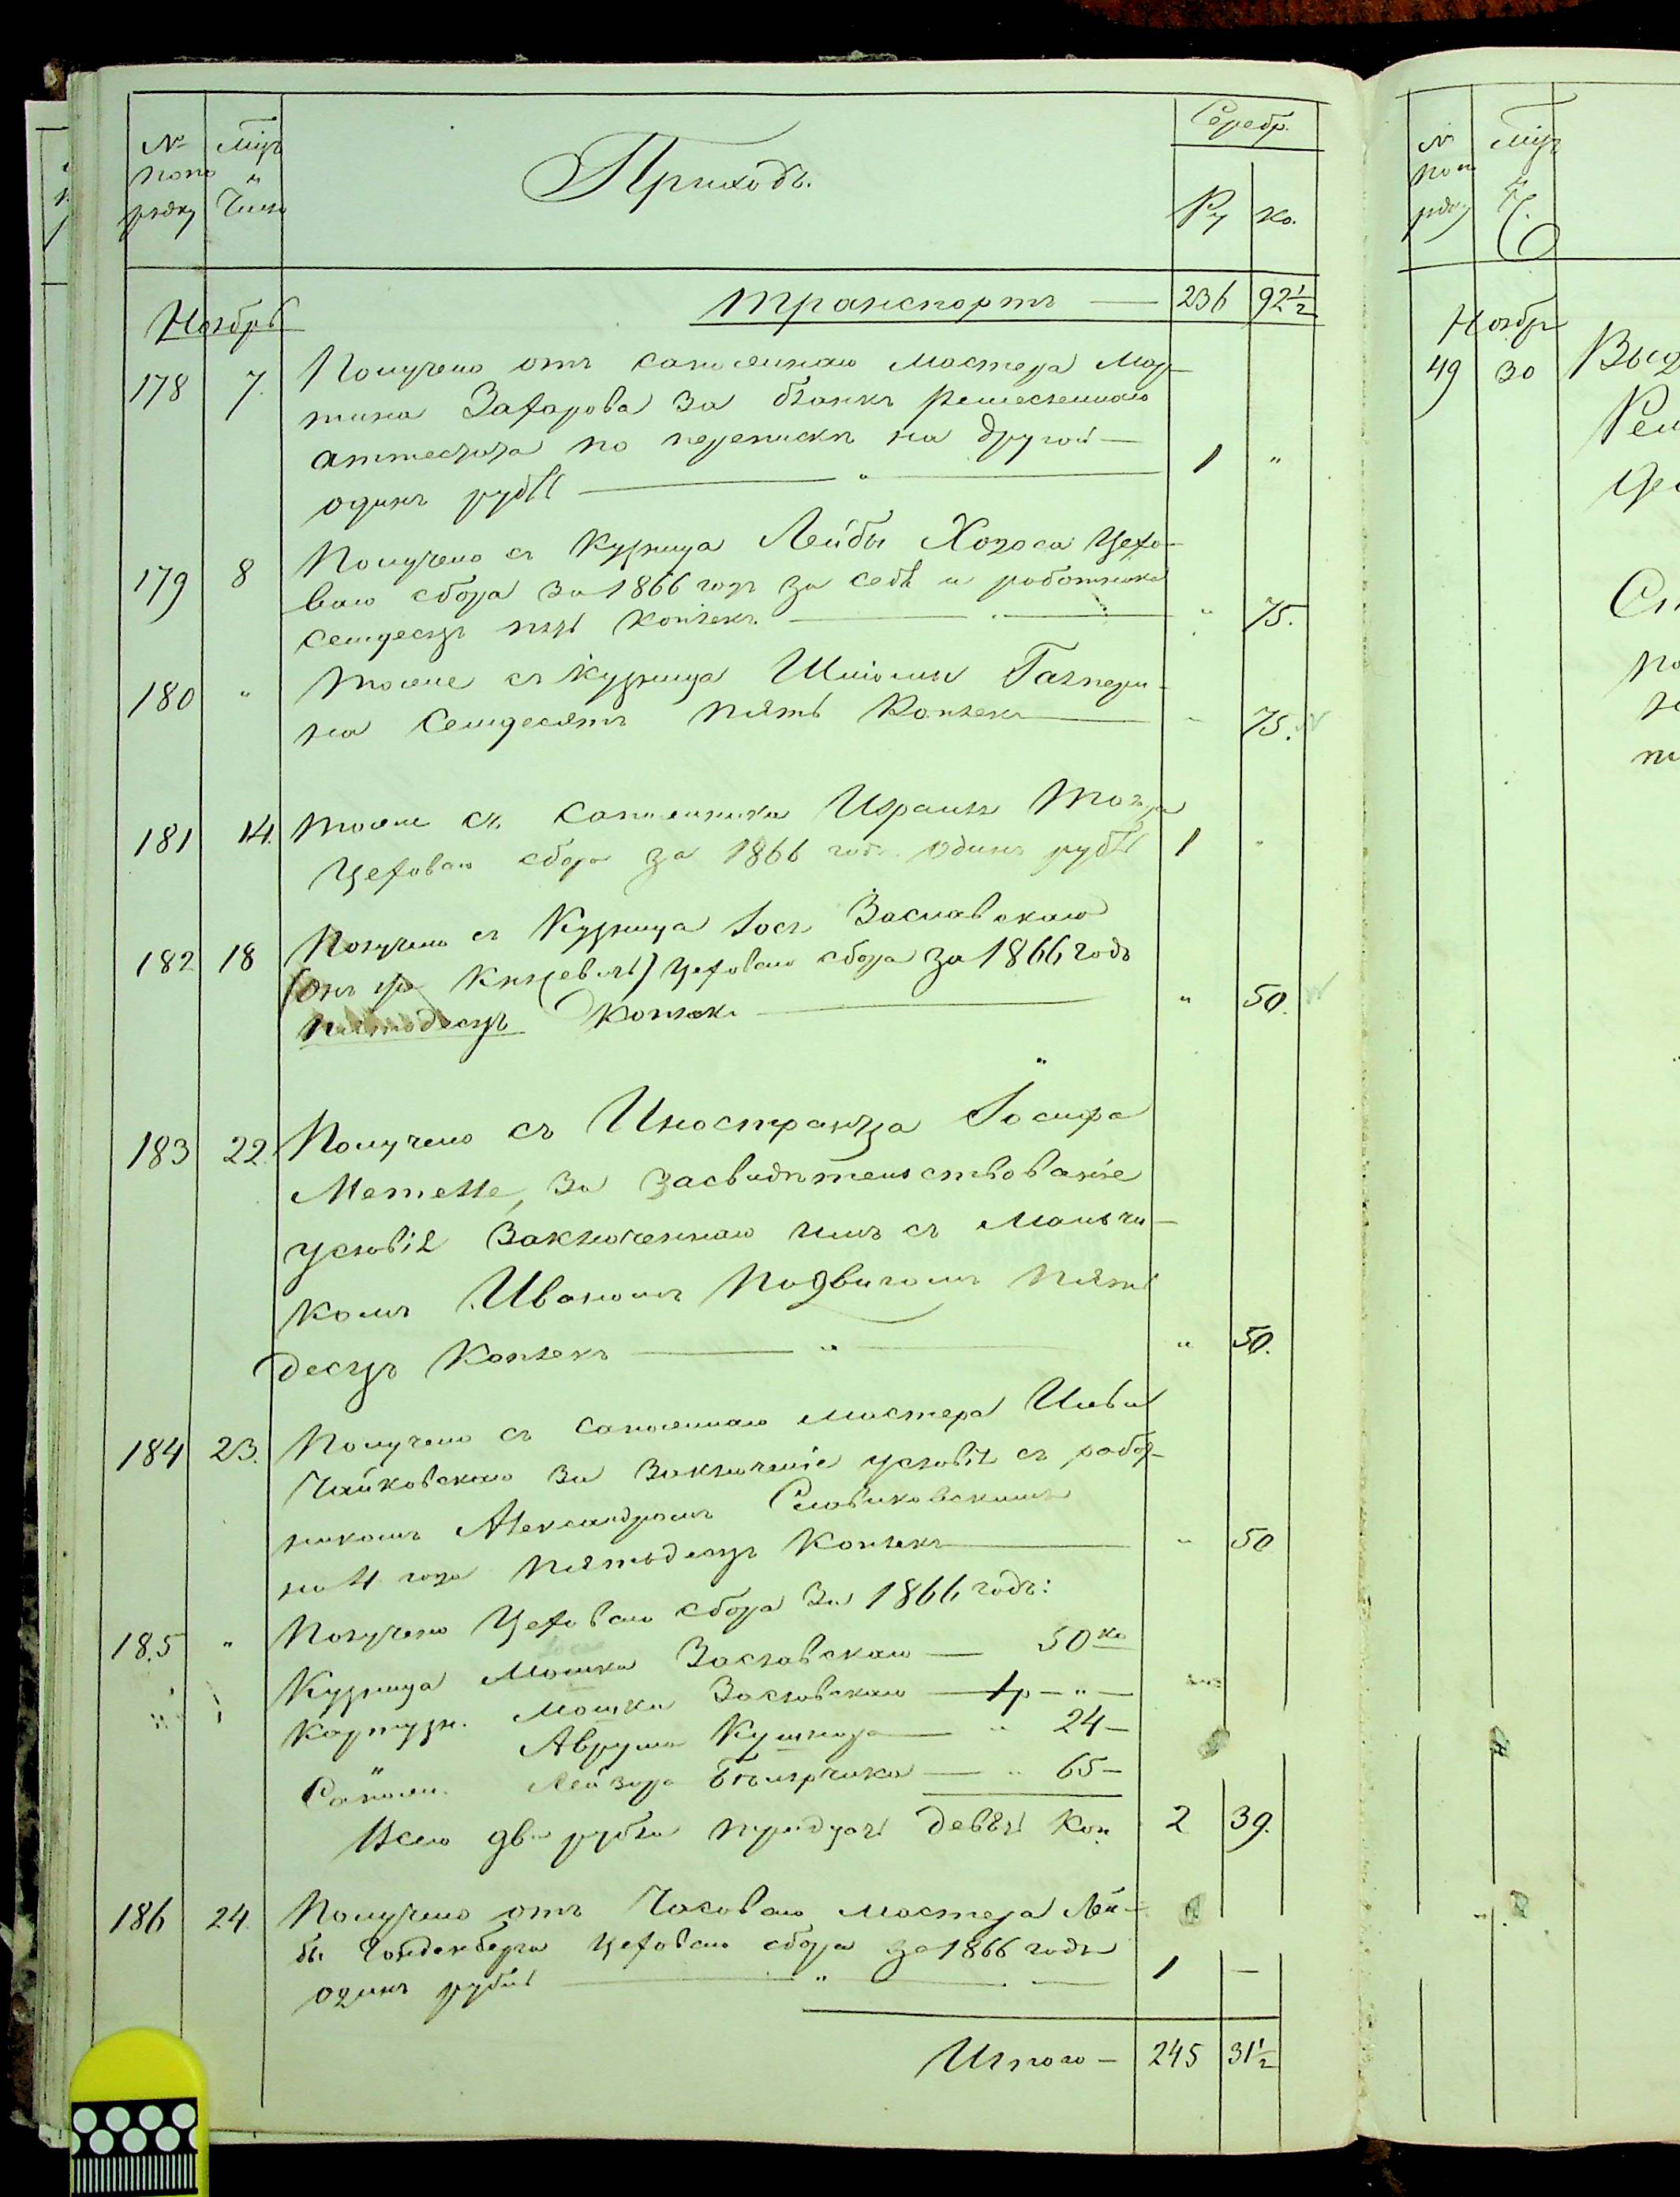 № Мцъ Приходъ. Серебр.
попо и
рядку Число Ру ко.
Ноябрь Транспортъ — 236 92½
178 7. Получено отъ сапожнаго мастера Мар-
тина Захарова за бланкъ ремесленнаго
аттестата по переписки на другой — 1 "
одинъ рубль — " —
179 8 Получено съ Кузнеца Лейбы Хозоса Цехо-
ваго сбора за 1866 годъ за себѣ и работника
семдесятъ пять копѣекъ — " 75.
180 " Тоже съ кузнеца Шліомы Гальпери-
на Семдесятъ пять Копѣекъ — " 75.
181 14. Тоже съ Сапожника Израиль
Цеховаго сбора за 1866 годъ один рубль 1 "
182 18 Получено съ Кузнеца Іосъ Заславскаго
Цеховаго сбора за 1866 годъ
пятьдесятъ Копѣекъ — " 50.
183 22. Получено съ Иностранца Іосифа
за засвидѣтельствованіе
условія заключеннаго имъ съ Мальчи-
комъ Иваномъ Подвигомъ пять
десятъ Копѣекъ — " — " 50.
184 23. Получено съ сапожнаго мастера Ильи
Чайковскаго за заключеніе условія съ работ-
никомъ Александромъ Словиковскимъ
на 4 года пятьдесятъ Копѣекъ — " 50
185 " Получено Цеховаго сбора за 1866 годъ:
Кузнеца Мошки Заславскаго — 50 ко
Картузн. Мошки Заславскаго — 1 р — " —
Аврума Кушнера — " 24 —
Сапожн. Лейзора — " 65 —
Всего два рубля тридцать девять Коп 2 39.
186 24. Получено отъ Часоваго мастера Лей-
бы Гольденберга Цеховаго сбора за 1866 годъ
одинъ рубль — " — 1 —
Итого — 245 31½
№ Мцъ
попо и
рядку Ч.
Ноябрь
49 30